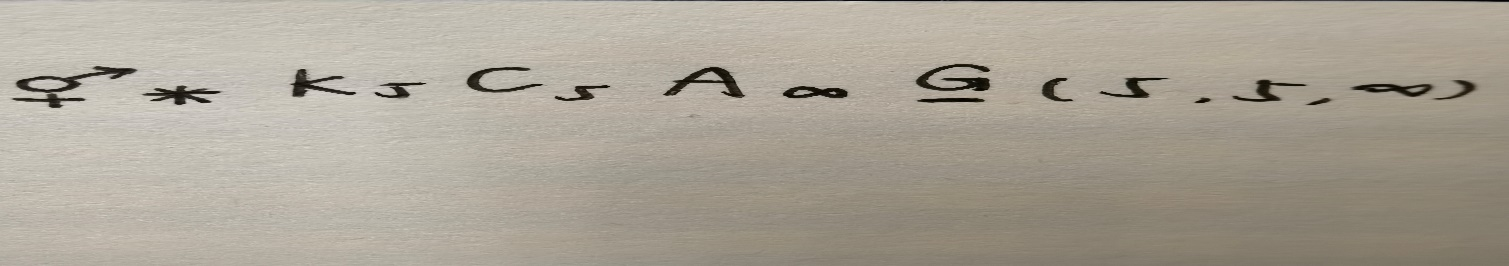 ⚥ * K5 C5 A∞ G̲ (5.5,∞)